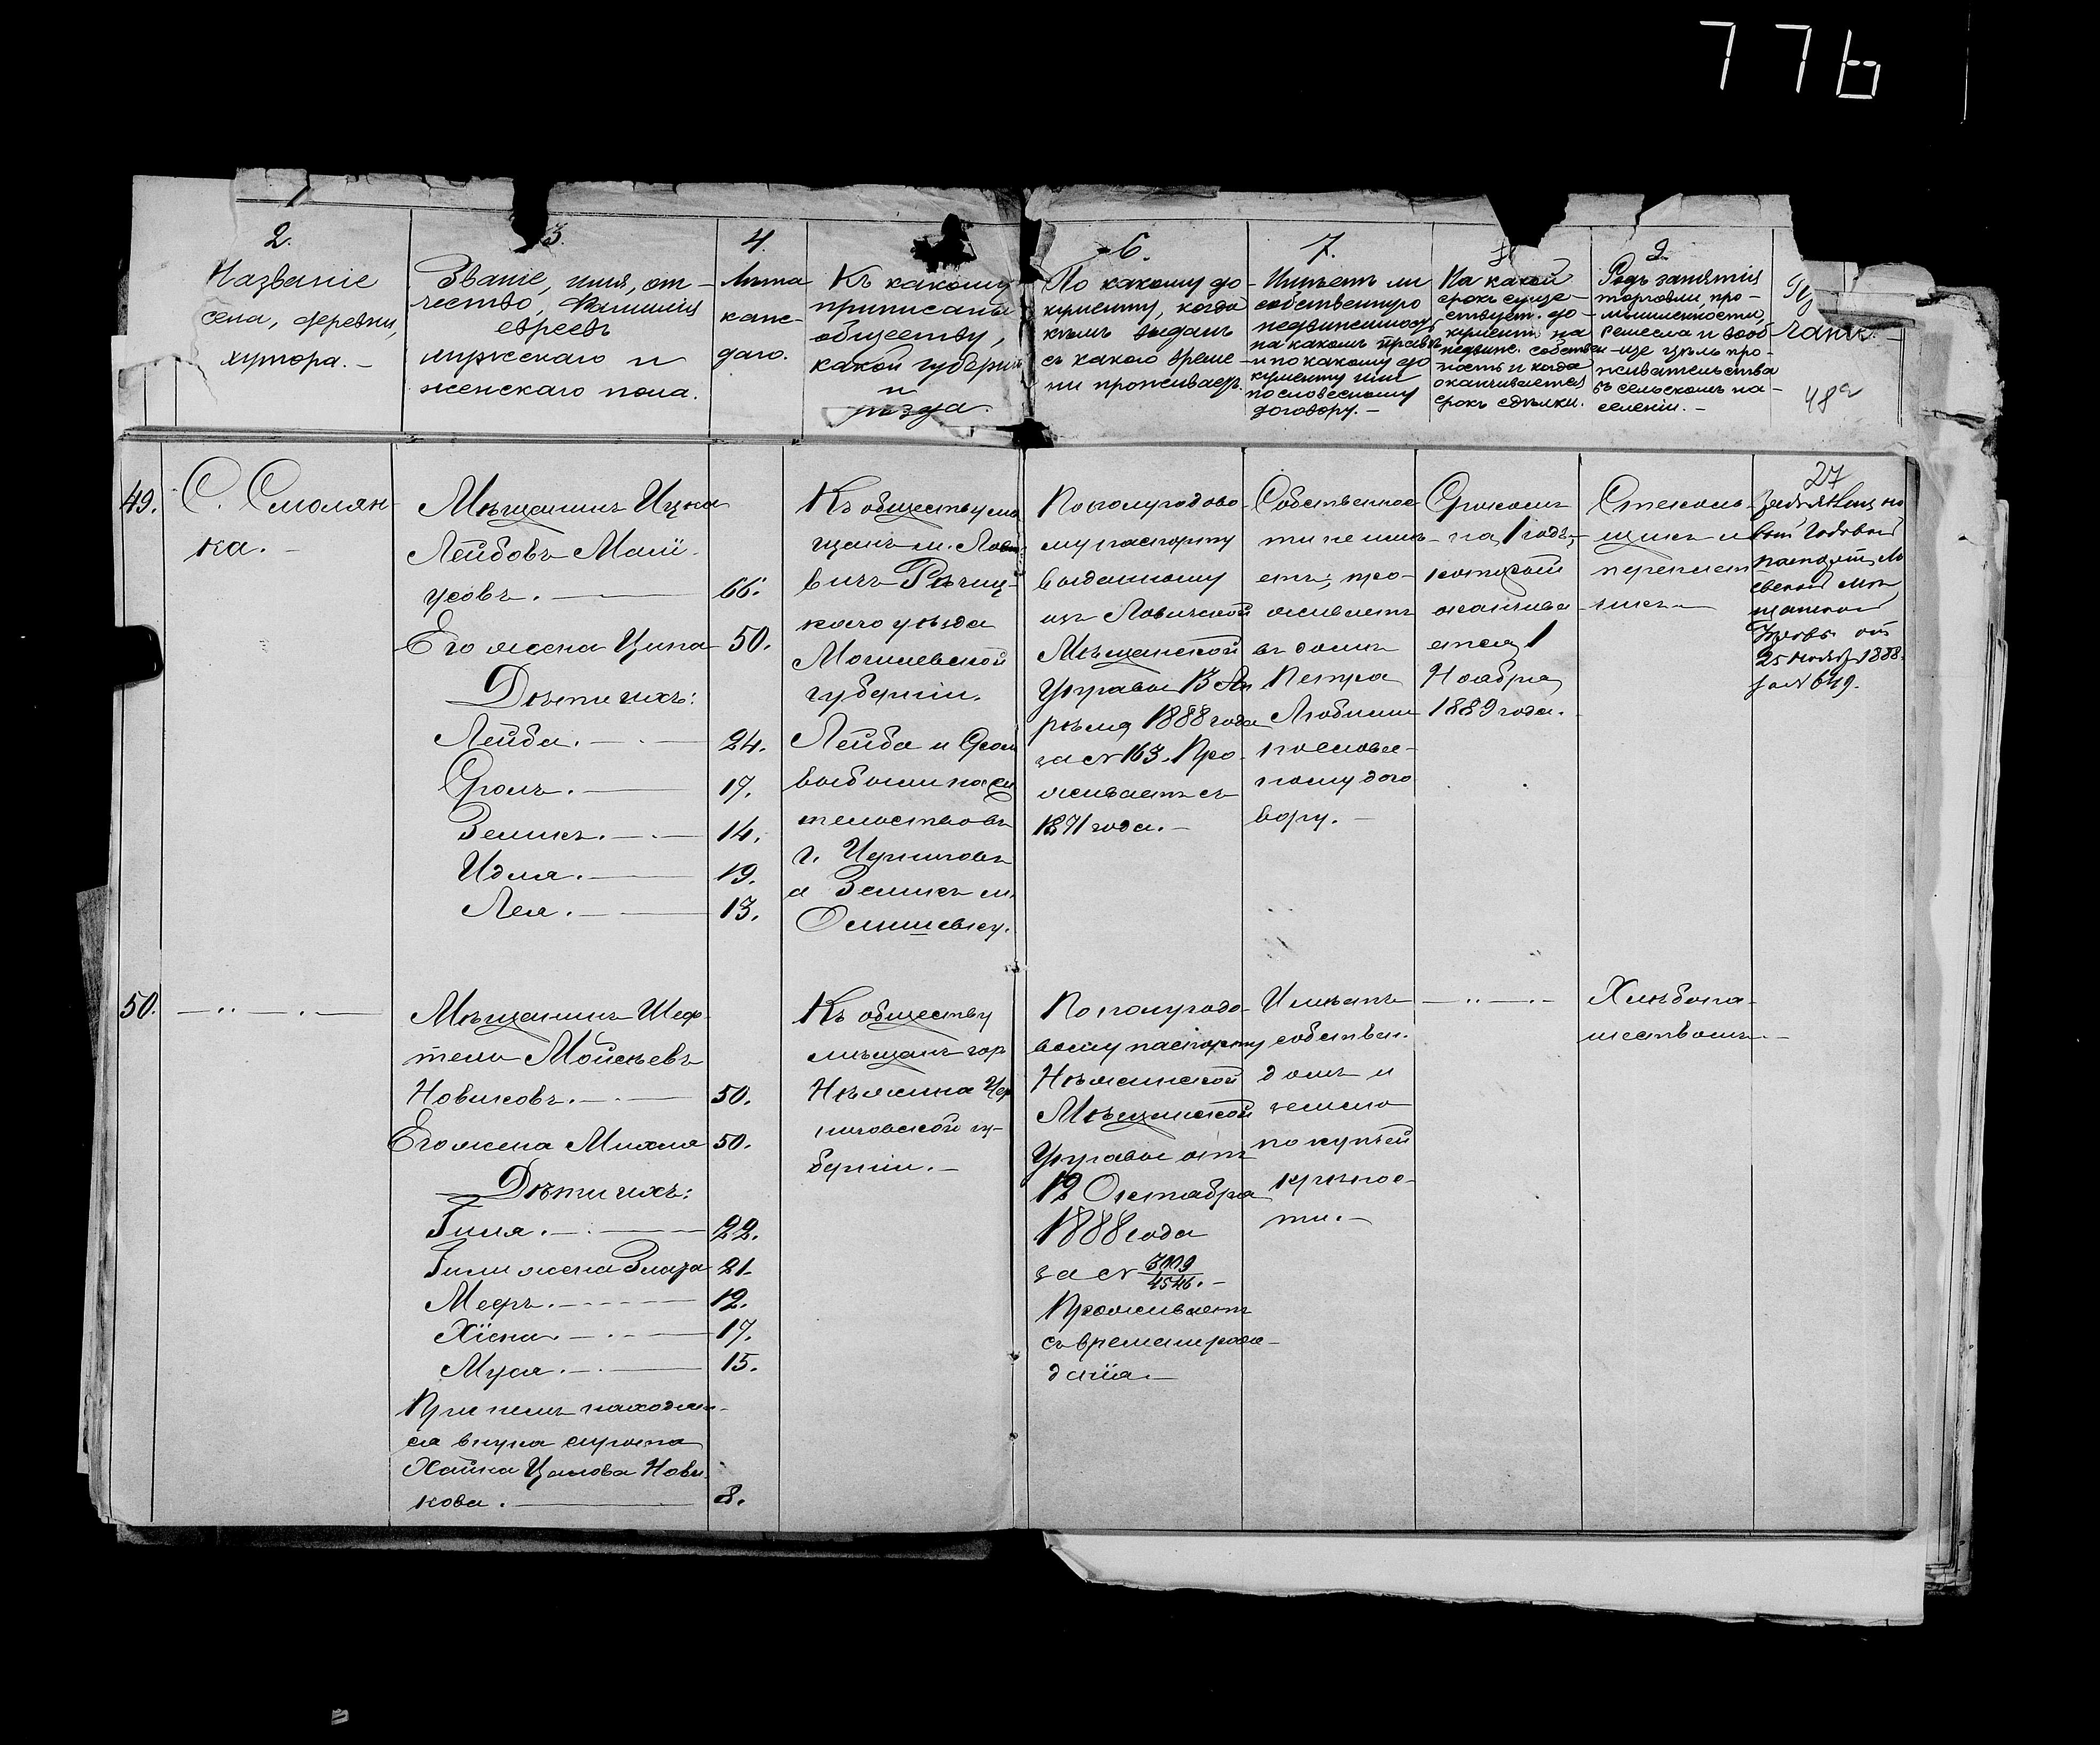 776
2.
Названіе
села, деревни,
хутора. –
3.
Званіе, имя, от-
чество, Фамилія
евреевъ
мужскаго и
женскаго пола.
4.
Лѣта
каж-
даго.
Къ какому
приписаны
обществу,
какой губерніи
и
уѣзда.
6.
По какому до-
кументу, когда
кѣмъ выданъ
съ какого време-
ни проживаетъ.
7.
Имѣетъ ли
собственную
недвижимость
на какомъ правѣ
и по какому до
кументу или
по словесному
договору. –
На какой
срокъ суще-
ствует. до-
кументъ на
недвиж. собствен
ность и когда
оканчивается
срокъ сдѣлки.
9.
Родъ занятія
торговли, про-
мышленности,
ремесла и вооб-
ще цѣль про-
живательства
въ сельскомъ на-
селеніи. –
48
49.
С. Смолян-
ка. –
Мѣщанинъ Ицка
Лейбовъ Маий-
усовъ. 66.
Его жена Ципа 50.
Дѣти ихъ:
Лейба. 24.
Сролъ. 17.
Зеликъ. 14.
Идля. 19.
Лея. 13.
Къ обществу мѣ
щанъ м. Лоев
вичъ Рѣчиц-
каго уѣзда
Могилевской
губерніи.
Лейба и Срол
выбыли на жи
тельство въ
г. Черниговъ
а Зеликъ м.
Олишевку.
По полугодово-
му паспорту
выданному
изъ Ловичской
Мѣщанской
Управы 13 Ап
рѣля 1888 года
за № 163. Про-
живаетъ съ
1871 года. –
Собственнос-
ти не имѣ-
етъ, про-
живаетъ
въ домѣ
Петра
Любими
по словес-
ному дого
вору. –
Срокомъ
на 1 годъ,
который
оканчива
ется 1
Ноября
1889 года.
Стеколь-
щикъ и
переплет
чикъ
27
новый Годовой
паспортъ Ло
евской Мѣ
щанской
Управы от
25 Ноябр. 1888.
за № 649.
50.
Мѣщанинъ Шеф-
тель Мойсѣевъ
Новиковъ. 50.
Его жена Михля 50.
Дѣти ихъ:
Гиля. 22.
Гили жена Злата 21.
Меєръ. 12.
Хієна. 17.
Муся. 15.
При немъ находит-
ся внука сирота
Хайка Цалова Нови
кова. 8.
Къ обществу
мѣщанъ гор.
Нѣжина Чер
ниговской гу-
берніи. –
По полугодо-
вому паспорту
Нѣжинской
Мѣщанской
Управы отъ
12 Октября
1888 года
за № 3109
4546. –
Проживаетъ
съ времени рож-
денія. –
Имѣетъ
собствен.
домъ и
землю
по купчей
крѣпос-
ти. –
Хлѣбопа-
шествомъ. –